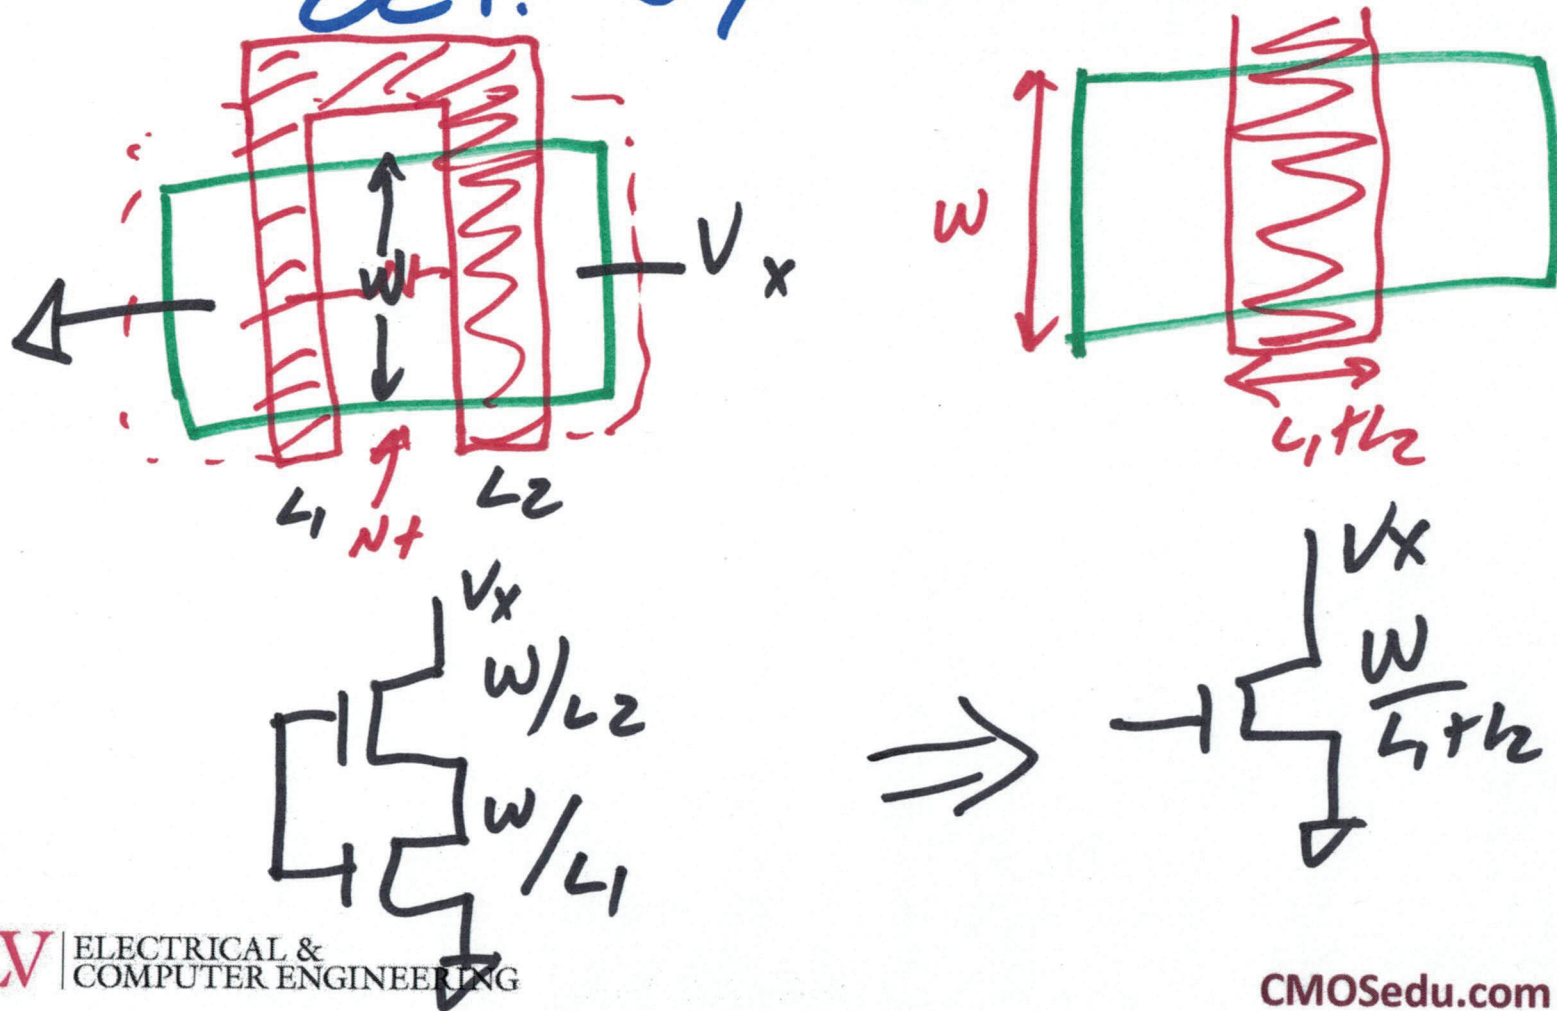 W
V x
W
L1
L2
N+
L1+L2
Vx
W/L2
W/L1
Vx
W
L1+L2
V ELECTRICAL &
COMPUTER ENGINEERING
CMOSedu.com